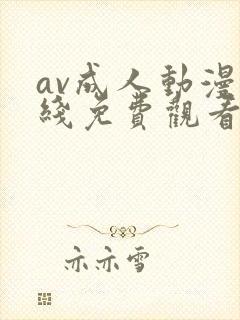 av成人動漫
綫免費觀看
亦亦雪